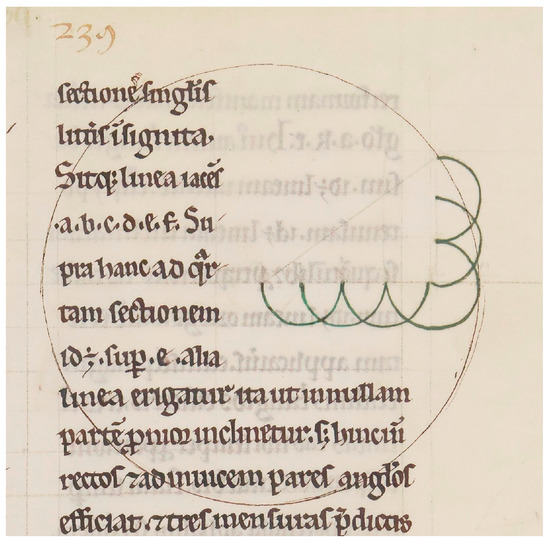 239
sectionē singłis
litīs īsignita.
Sitqꝫ linea iacēs
.a.b.c.d.e.f. Su
pra hanc ad qᵃr
tam sectionem
id÷. suꝑ .e. alia
linea erigatur ita ut in nullam
partē ꝓnior inclinetur. sꝫ hinc iñ
rectos ⁊ ad inuicem pares angłos
efficiat. ⁊ tres mensuras p̄dictas